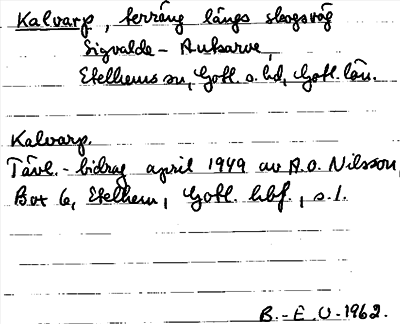 Kalvarp, terräng längs skogsväg
Sigvalde - Auksarve,
Etelhems sn, Gotl. s. hd, Gotl. län.
Kalvarp.
Tävl.-bidrag april 1949 av A.O. Nilsson,
Box 6, Etelhem, Gotl. hbf., s. 1.
B.-E.U.-1962.